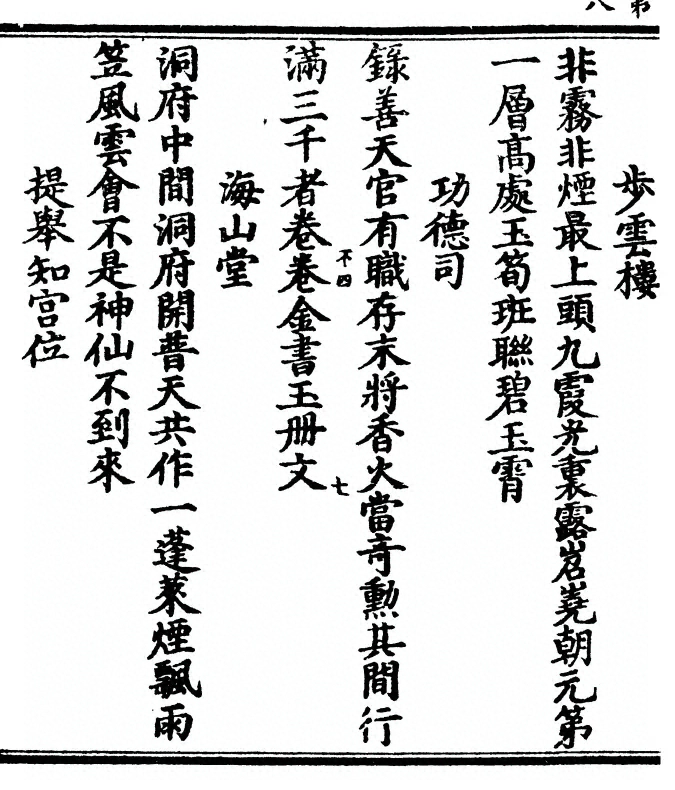 歩雲樓
非霧非煙最上頭九霞光裏露岧嶤朝元第
一層髙處玉筍班聯碧玉霄
功德司
録善天官有職存末將香火當竒勲其間行
滿三千者卷卷金書玉册文
不四
七
海山堂
洞府中間洞府開普天共作一蓬萊煙飄雨
笠風雲會不是神仙不到來
提舉知宫位